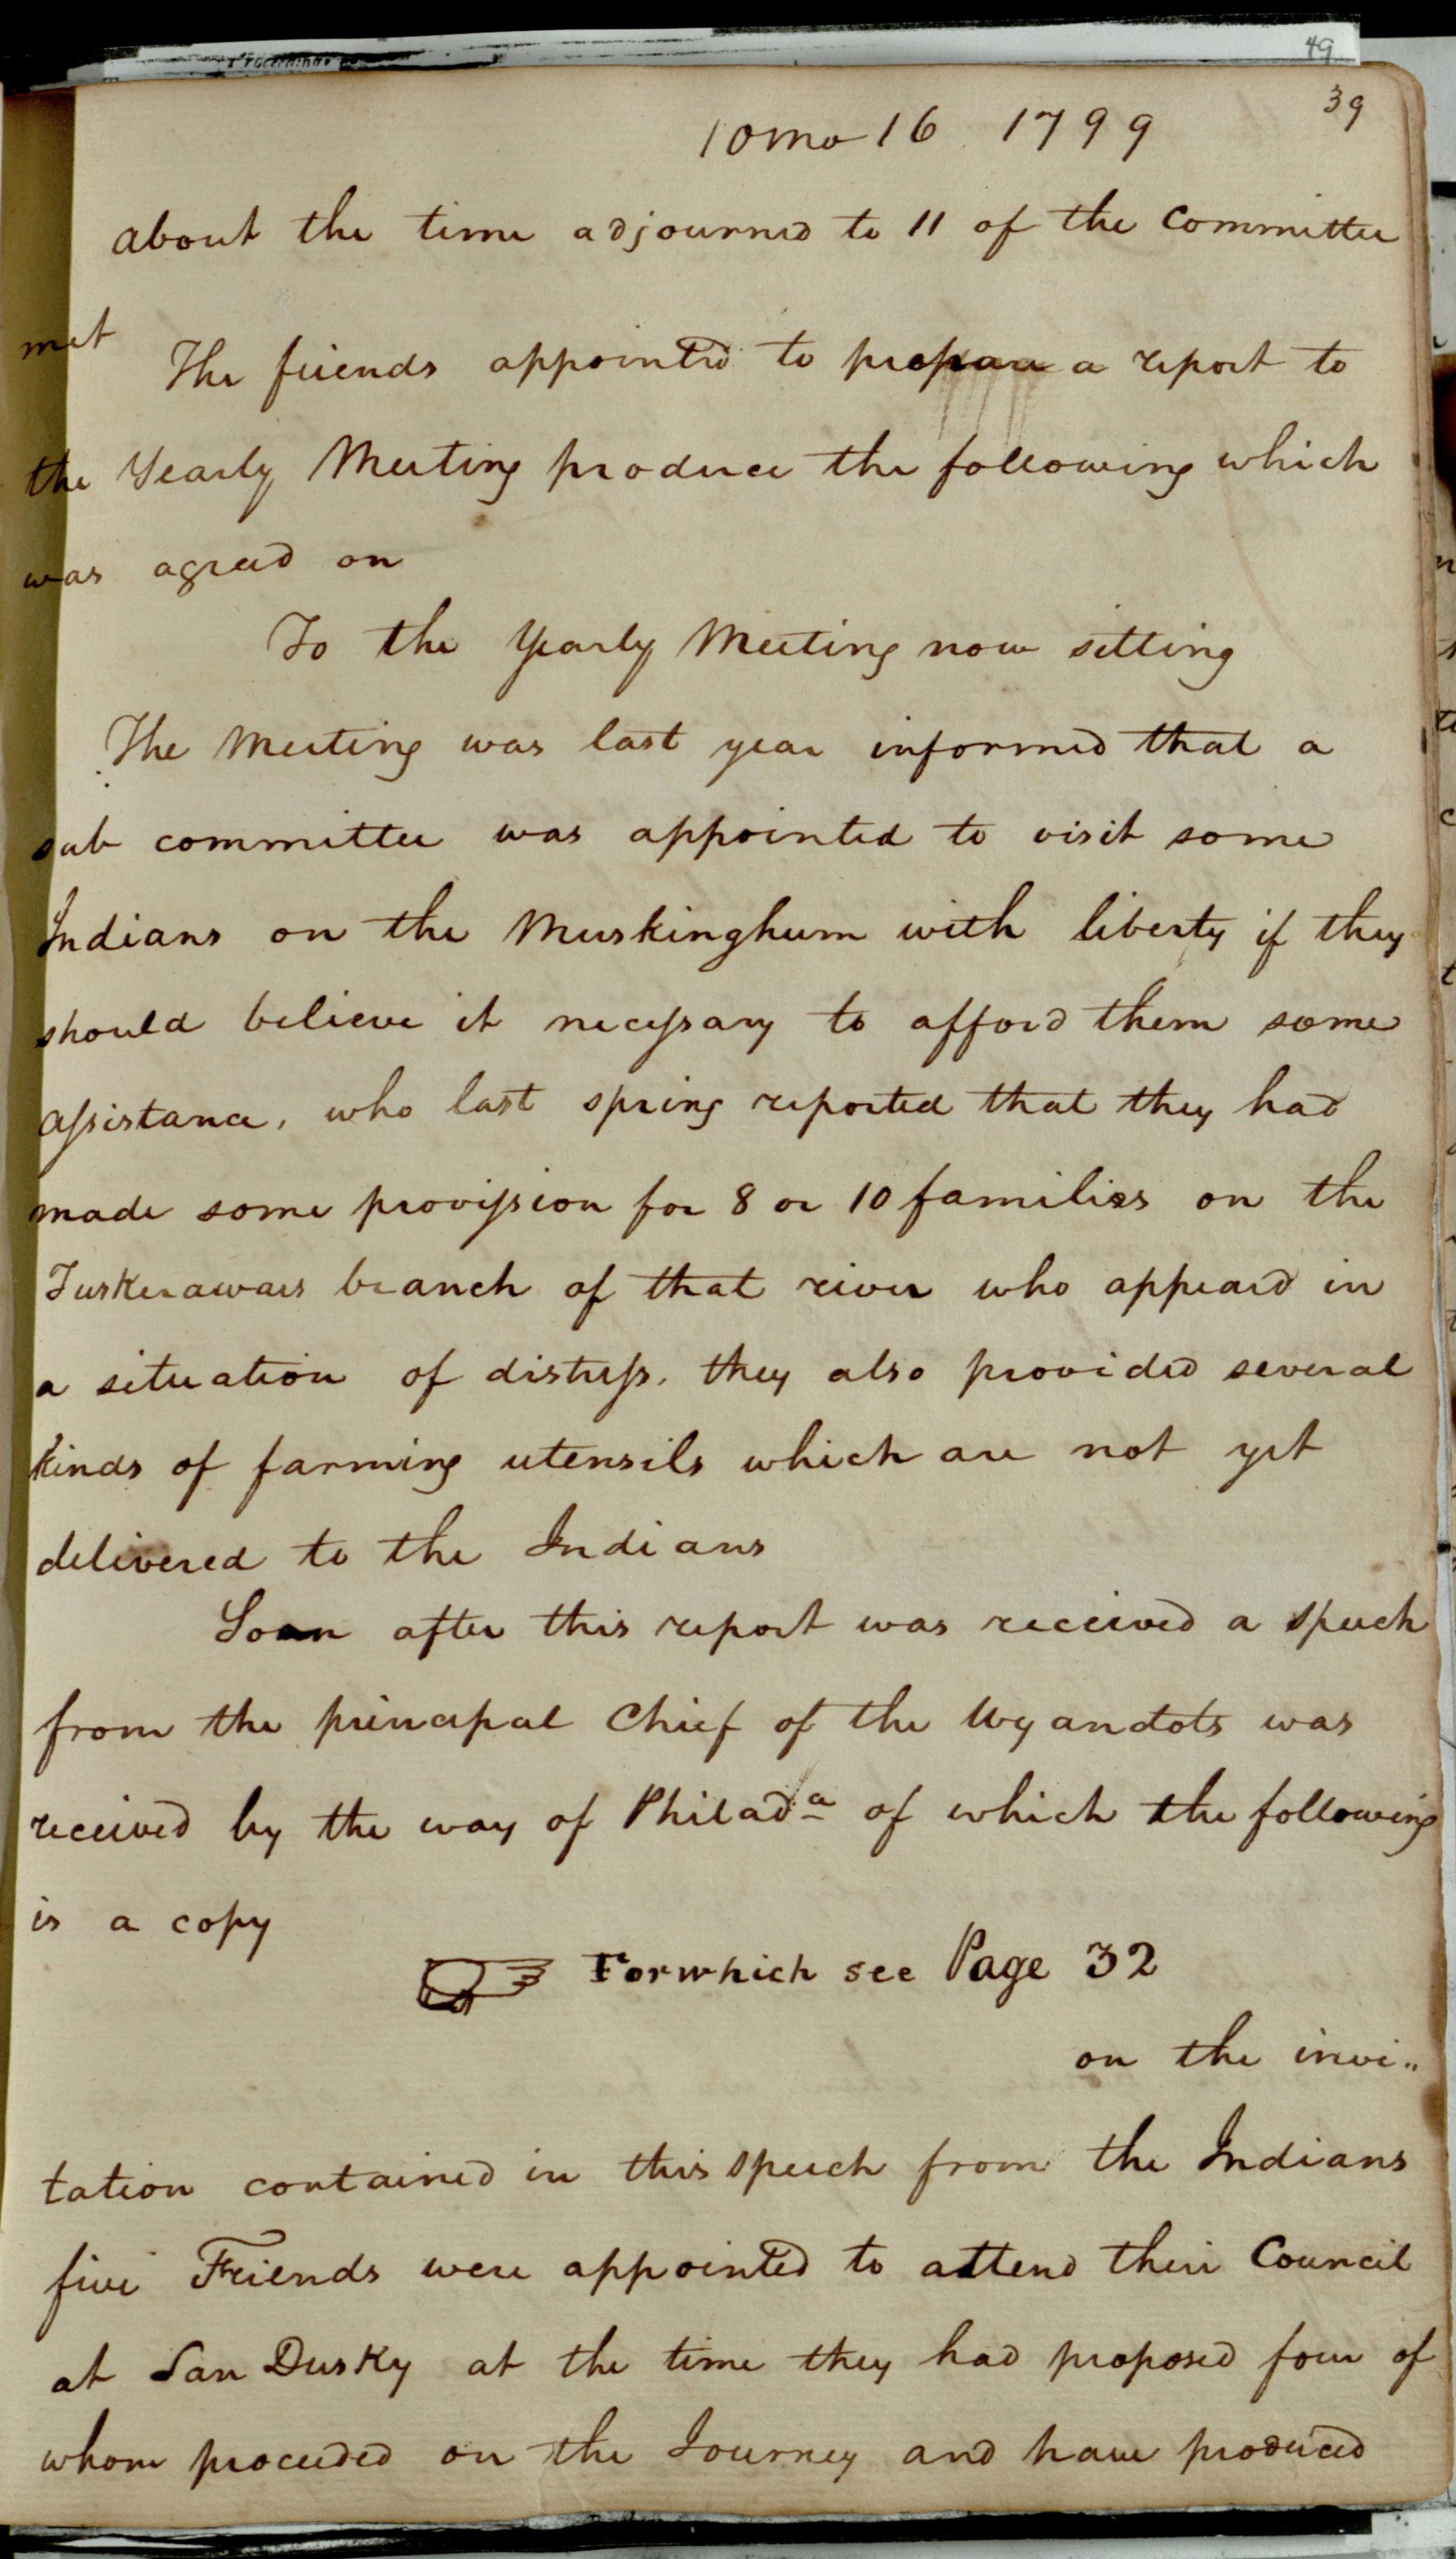 49
39
10mo 16 1799
about the time adjourned to 11 of the Committee
met
The friends appointed to prepare a report to
the Yearly Meeting produce the following which
was agreed on
To the Yearly Meeting now sitting
The Meeting was last year informed that a
sub committee was appointed to visit some
Indians on the Muskinghum with liberty if they
should believe it necessary to afford them some
assistance, who last spring reported that they had
made some provission for 8 or 10 families on the
Tuskerawais branch of that river who appeard in
a situation of distress. they also provided several
kinds of farming utensils which are not yet
delivered to the Indians
Soon after this report was received a speech
from the principal Chief of the Wyandots was
received by the way of Philada of which the following
is a copy
☞ For which see Page 32
on the invi„
tation contained in this speech from the Indians
five Friends were appointed to attend their Council
at San Dusky at the time they had proposed four of
whom proceeded on the Journey and have produced